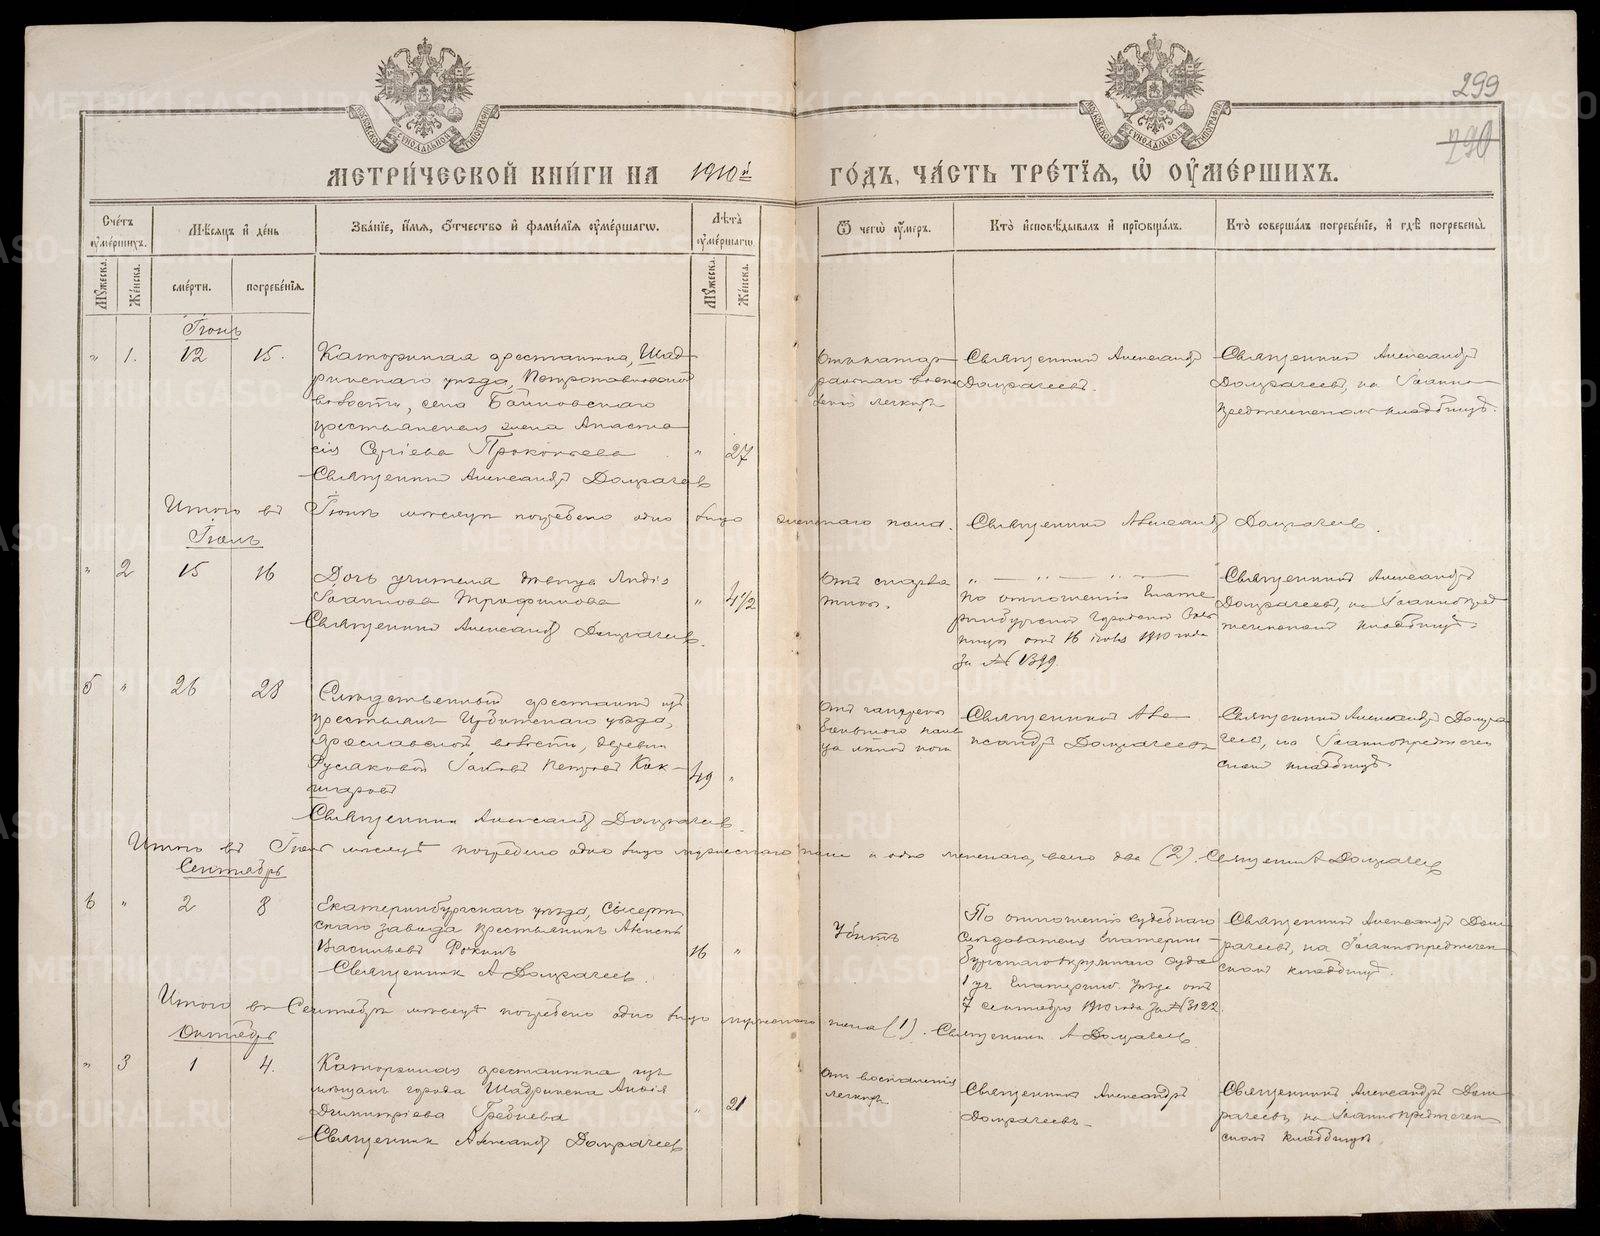 299
290
МЕТРИ́ЧЕСКОЙ КНИ́ГИ НА 1910й ГО́ДЪ, ЧА́СТЬ ТРЕ́ТІЯ, Ѡ ОУМЕ́РШИХЪ.
Сче́тъ оуме́ршихъ.
Мѣ́сяцъ и де́нь
Зва́ніе, и́мя, о́тчество и фами́лія оуме́ршагѡ.
Лѣ́та оуме́ршагѡ
Ѿ чегѡ̀ оу́меръ.
Кто̀ исповѣ́дывалъ и пріобща́лъ.
Кто̀ соверша́лъ погребе́ніе, и гдѣ̀ погребены̀.
Му́жеска. Же́нска.
сме́рти. погребе́нія.
Му́жеска. Же́нска.
Іюнь
" 1. 12 15.
Каторжная арестантка, Шад-
ринскаго уѣзда, Петропавловской
волости, села
крестьянская жена Анаста-
сія Сергіева Прокопьева " 27
Священникъ Александръ Домрачевъ
Отъ катар-
ральнаго воспа
ленія легкихъ
Священникъ Александръ
Домрачевъ.
Священникъ Александръ
Домрачевъ, на Іоанно-
предтеченскомъ кладбищѣ.
Итого въ Іюнѣ мѣсяцѣ погребено одно лицо женскаго пола. Священникъ Александръ Домрачевъ.
Іюль
" 2 15 16
Дочь учителя дѣвица Лидія
Іоаннова Трофимова " 4½
Священникъ Александръ Домрачевъ.
Отъ скарла
тины.
" — " — " —
По отношенію Екате
ринбургской Городской Боль
ницы отъ 16 іюля 1910 года
за № 1399.
Священникъ Александръ
Домрачевъ, на Іоаннопред
теченскомъ кладбищѣ.
5 " 26 28
Слѣдственный арестантъ изъ
крестьянъ Ирбитскаго уѣзда,
Ярославской волости, деревни
Русаковой Іаковъ Петровъ Кок-
шаровъ 49 "
Священникъ Александръ Домрачевъ.
Отъ гангрены
большого паль
ца лѣвой ноги
Священникъ Але-
ксандръ Домрачевъ
Священникъ Александръ Домра
чевъ, на Іоаннопредтечен
скомъ кладбищѣ
Итого въ Іюлѣ мѣсяцѣ погребено одно лицо мужескаго пола и одно женскаго, всего два (2). Священникъ А Домрачевъ
Сентябрь
6 " 2 8
Екатеринбургскаго уѣзда, Сысерт
скаго завода крестьянинъ Алексѣй
Васильевъ Фокинъ 16 "
Священникъ А Домрачевъ.
Убитъ
По отношенію судебнаго
слѣдователя Екатерин-
бургскаго окружнаго суда
1 уч. Екатеринб. уѣзда отъ
7 сентября 1910 года за № 3122.
Священникъ Александръ Дом-
рачевъ, на Іоаннопредтечен
скомъ кладбищѣ.
Итого въ Сентябрѣ мѣсяцѣ погребено одно лицо мужескаго пола (1). Священникъ А Домрачевъ.
Октябрь
" 3 1 4.
Каторжная арестантка изъ
мѣщанъ города Шадринска
Димитріева Гребнева " 21
Священникъ Александръ Домрачевъ
Отъ воспаленія
легкихъ
Священникъ Александръ
Домрачевъ
Священникъ Александръ Дом-
рачевъ, на Іоаннопредтечен
скомъ кладбищѣ